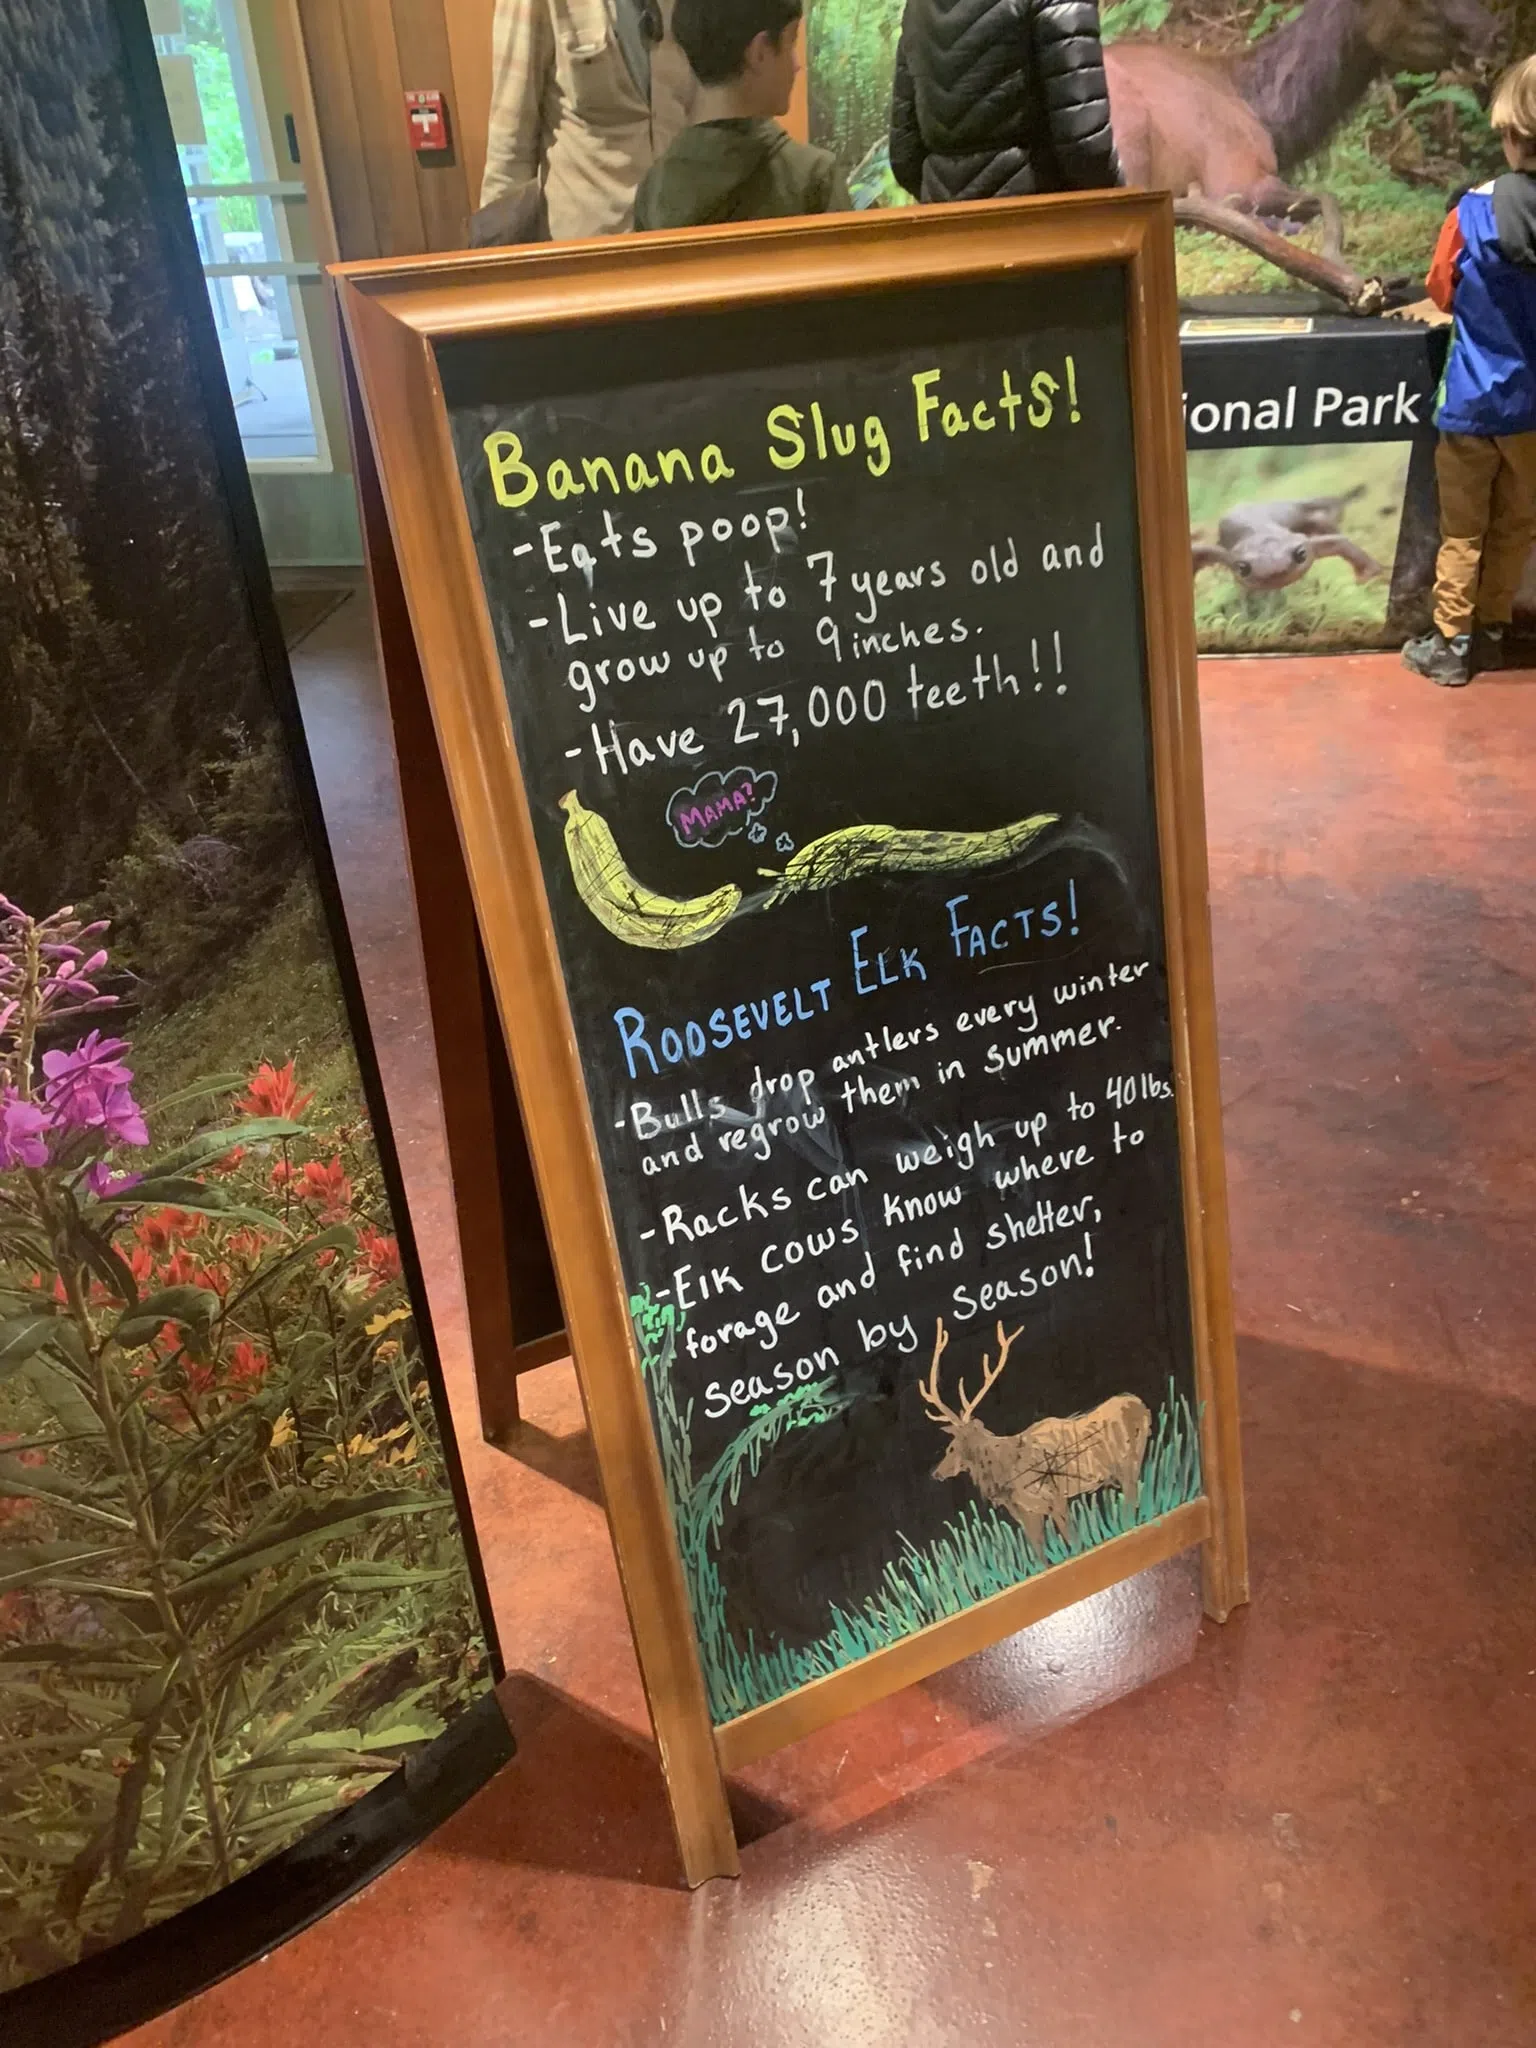 Banana Slug Facts!
-Eats poop!
-Live up to 7 years old and
grow up to 9 inches.
-Have 27,000 teeth!!
MAMA?
ROOSEVELT ELK FACTS!
-Bulls drop antlers every winter
and regrow them in summer.
-Racks can weigh up to 40 lbs.
-Elk cows know where to
forage and find shelter,
season by season!
ional Park